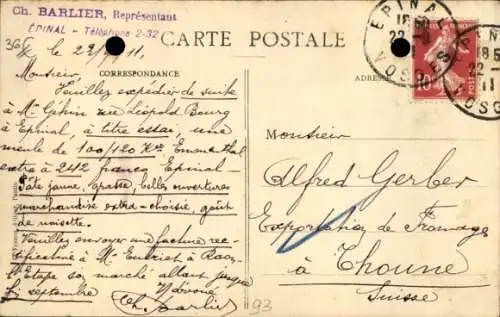 Ch. BARLIER, Représentant
ÉPINAL - Téléphone 2-32
CARTE POSTALE
CORRESPONDANCE
ADRESSE
ÉPINAL
VOSGES
10
le 22/ /11,
Monsieur,
Veuillez expédier de suite
à Mr Géhin rue Léopold Bourg
à Epinal, à titre essai, une
meule de 100/120 Kos Emmenthal
extra à 242 francs Epinal -
Pâte jaune, grasse, belles ouvertures
marchandise extra-choisie, goût
de noisette.
Veuillez envoyer une facture res-
pective à Mr
l'Etape son marché allant jusque
fin septembre
Ch. Barlier
Monsieur
Alfred Gerber
Exportation de Fromages
à Thoune
Suisse
93